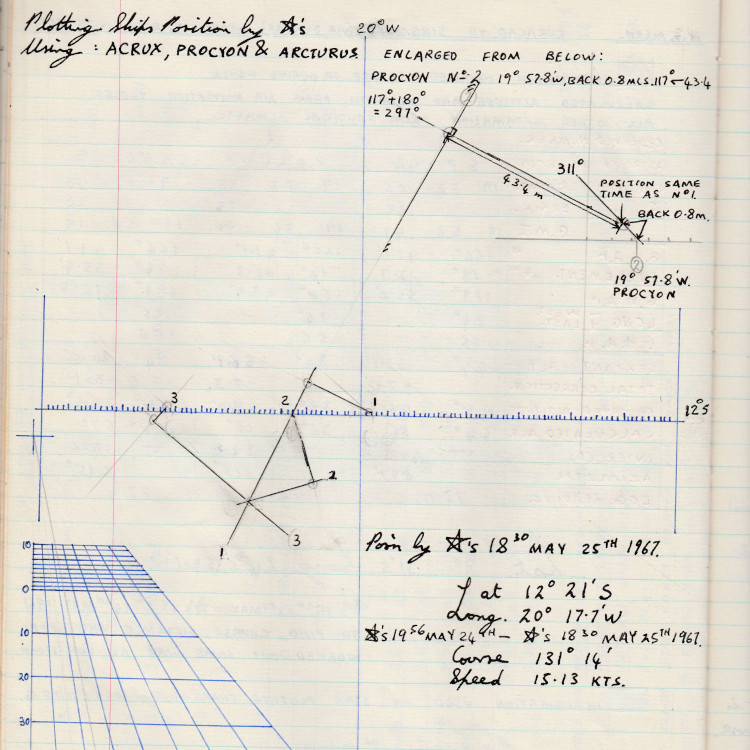 Plotting Ships Position by ☆'s
Using : ACRUX, PROCYON & ARCTURUS
20°W
ENLARGED FROM BELOW:
PROCYON Nº 2 19° 57.8'W, BACK 0.8 MLS. 117° - 43.4
117°+180°
= 297°
1
311°
43.4 m
POSITION SAME
TIME AS Nº1.
BACK 0.8M.
2
19° 57.8'W.
PROCYON
3
2
1
12°S
2
1
3
10
0
10
20
30
Posn by ☆'s 18 30 MAY 25TH 1967.
Lat 12° 21'S
Long. 20° 17.7'W
☆'s 19 56 MAY 24TH — ☆'s 18 30 MAY 25TH 1967.
Course 131° 14'
Speed 15.13 KTS.